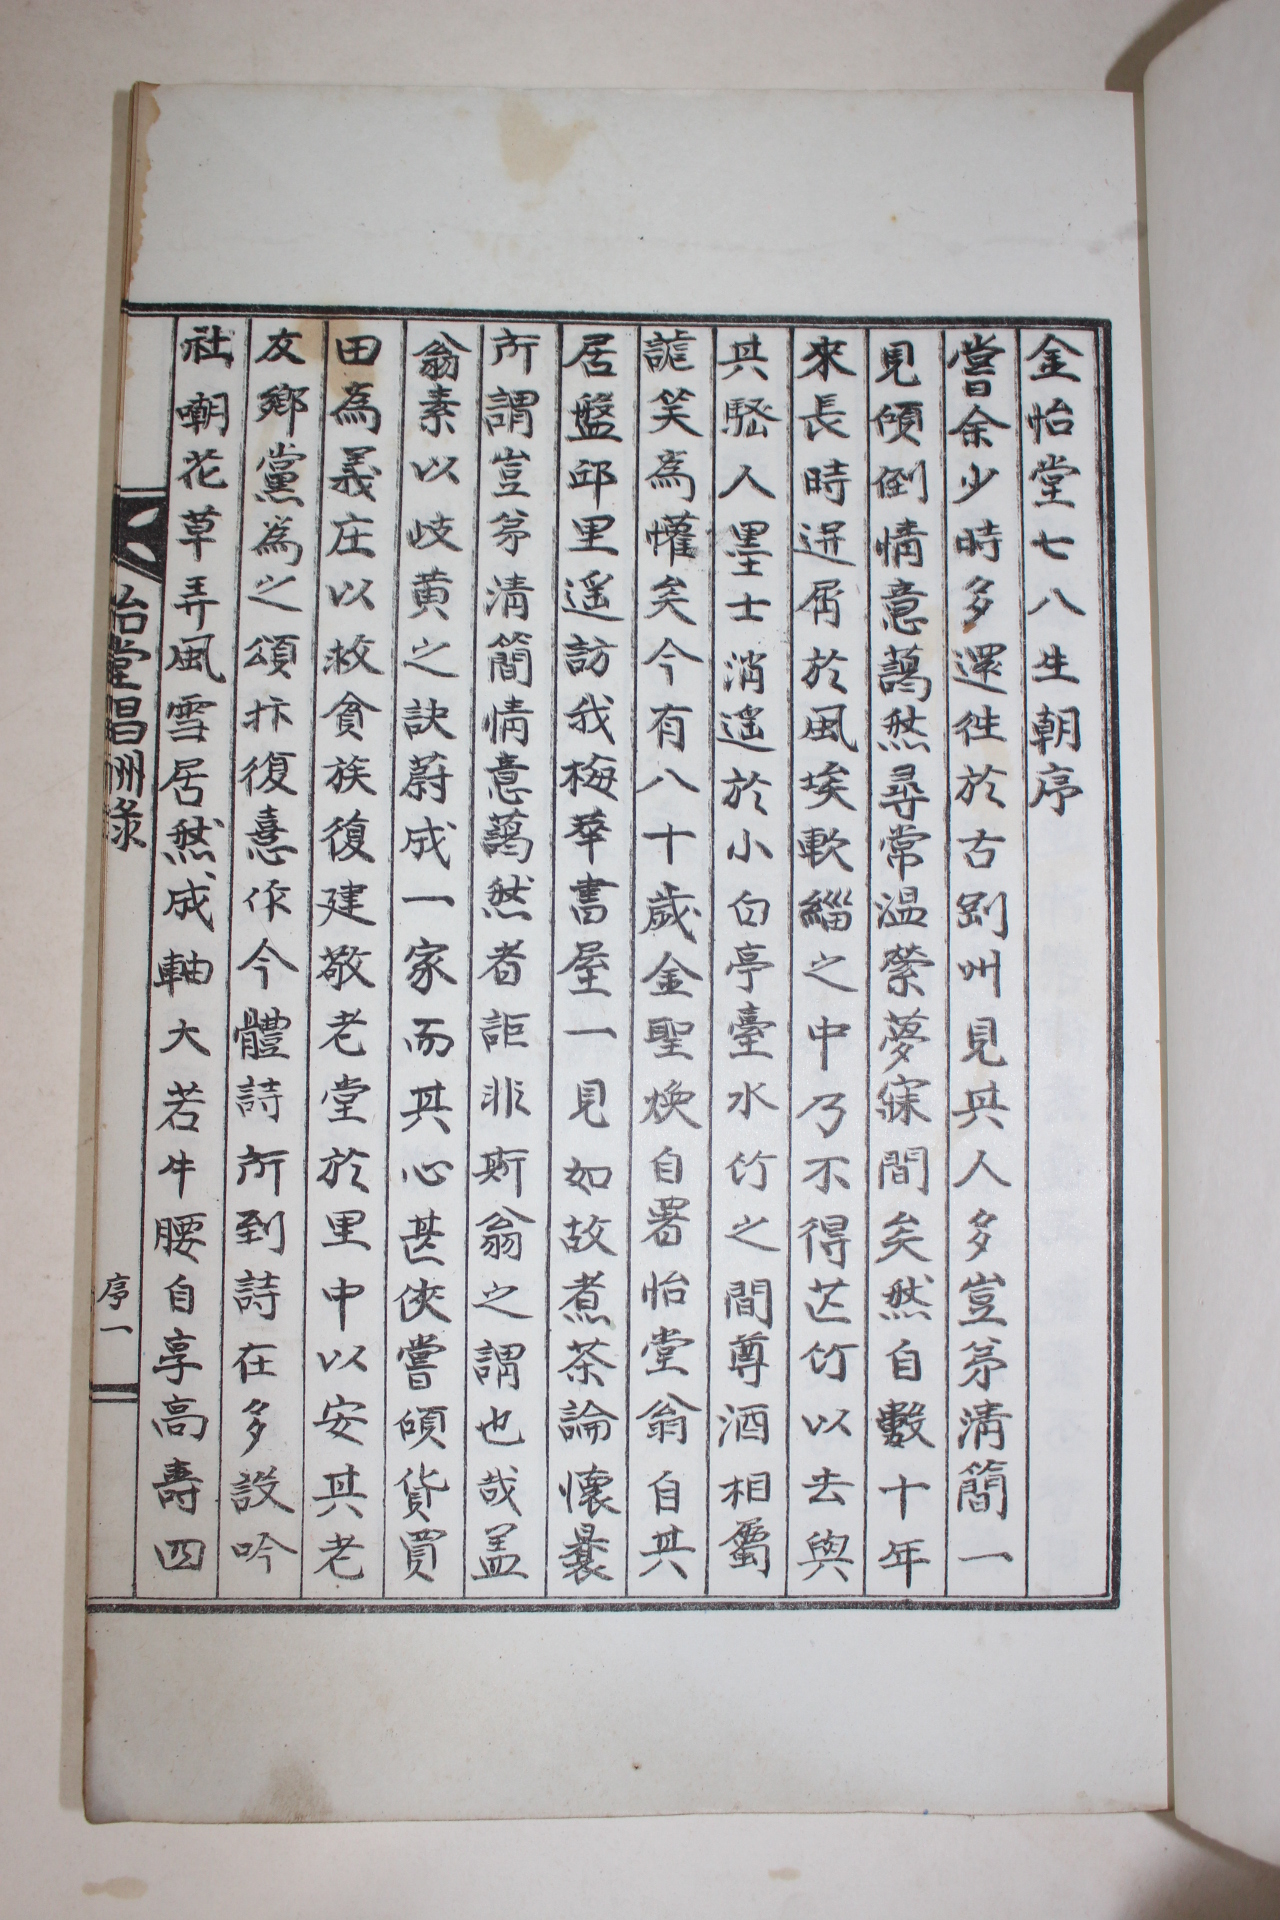 金怡堂七八生朝序
嘗余少時多還往於古剡州見其人多豈弟淸簡一
見傾倒情意藹然尋常溫縈夢寐間矣然自數十年
來長時迸屑於風埃軟緇之中乃不得芒竹以去與
其騷人墨士消遥於小白亭臺水竹之間尊酒相屬
謔笑爲懽矣今有八十歲金聖煥自署怡堂翁自其
居盤邱里遥訪我梅華書屋一見如故煮茶論懷曩
所謂豈弟淸簡情意藹然者詎非斯翁之謂也哉盖
翁素以岐黄之訣蔚成一家而其心甚俠嘗傾貨買
田為義庄以救貧族復建敬老堂於里中以安其老
友鄉黨為之頌抃復憙作今體詩所到詩在多設吟
社嘲花草弄風雪居然成軸大若牛腰自享高壽四
怡堂唱酬錄
序一